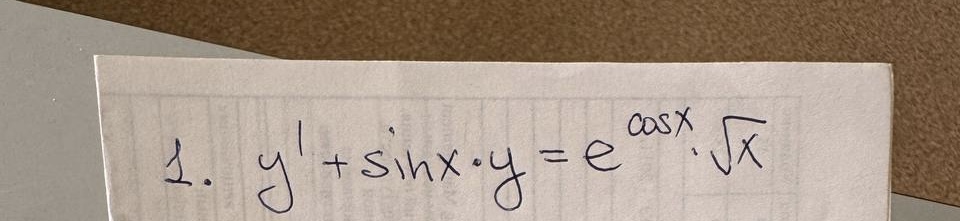 1. y' + sinx·y = e^{cosx}·√x